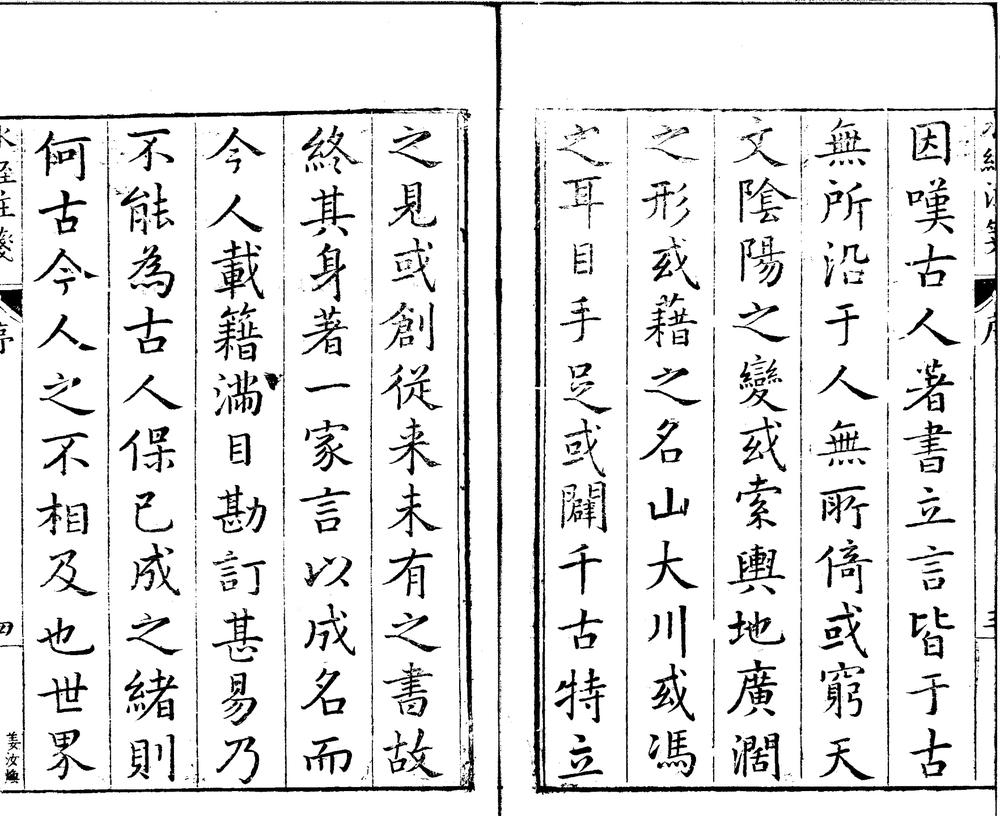 因嘆古人著書立言皆于古
無所沿于人無所倚或窮天
文陰陽之變或索輿地廣濶
之形或藉之名山大川或馮
之耳目手足或闢千古特立
之見或創從来未有之書故
終其身著一家言以成名而
今人載籍滿目勘訂甚易乃
不能為古人保已成之緒則
何古今人之不相及也世界
水經註箋
序
四
姜汝